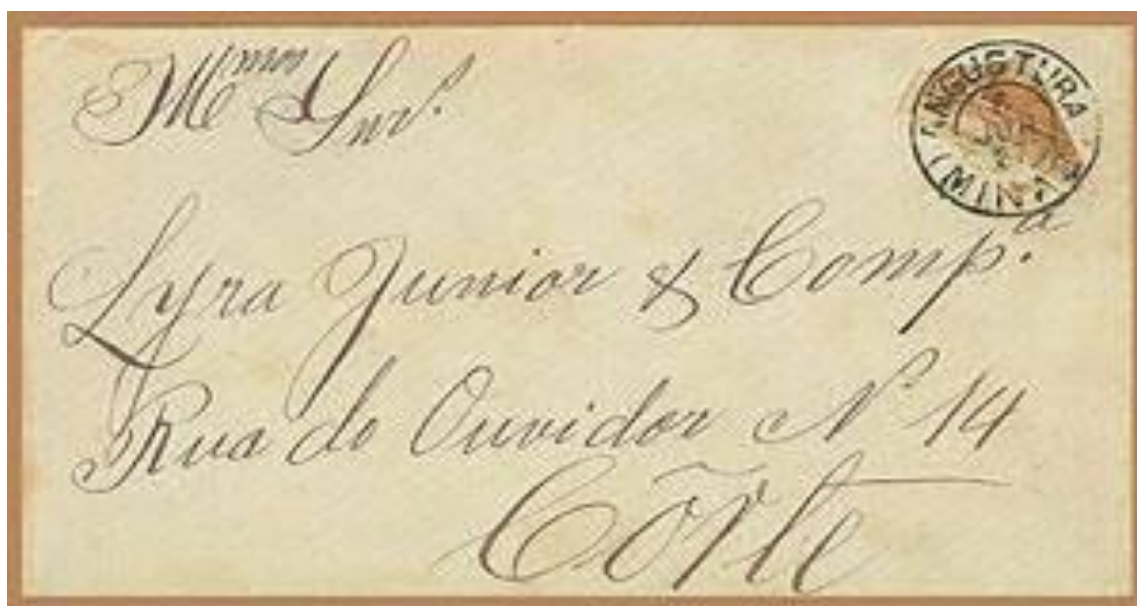 Ill.mos Snrs.
ANGUSTURA
(MINAS
Lyra Junior & Comp.a
Rua do Ouvidor Nº 14
Côrte